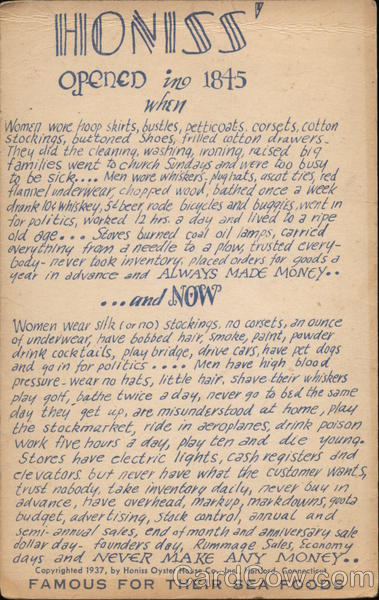 HONISS'
OPENED in 1845
when
Women wore hoop skirts, bustles, petticoats, corsets, cotton
stockings, buttoned shoes, frilled cotton drawers-
They did the cleaning, washing, ironing, raised big
families went to church Sundays and were too busy
to be sick.... Men wore whiskers, plughats, ascot ties, red
flannel underwear, chopped wood, bathed once a week
drank 10¢ whiskey, 5¢ beer rode bicycles and buggies, went in
for politics, worked 12 hrs. a day and lived to a ripe
old age.... Stores burned coal oil lamps, carried
everything from a needle to a plow, trusted every-
body- never took inventory, placed orders for goods a
year in advance and ALWAYS MADE MONEY..
...and NOW
Women wear silk (or no) stockings, no corsets, an ounce
of underwear, have bobbed hair, smoke, paint, powder
drink cocktails, play bridge, drive cars, have pet dogs
and go in for politics .... Men have high blood
pressure- wear no hats, little hair, shave their whiskers
play golf, bathe twice a day, never go to bed the same
day they get up, are misunderstood at home, play
the stockmarket, ride in aeroplanes, drink poison
work five hours a day, play ten and die young.
Stores have electric lights, cash registers and
elevators but never have what the customer wants,
trust nobody, take inventory daily, never buy in
advance, have overhead, markup, markdowns, quota
budget, advertising, stock control, annual and
semi-annual sales, end of month and anniversary sale
dollar day- founders day, Rummage Sales, Economy
days and NEVER MAKE ANY MONEY..
Copyrighted 1937, by Honiss Oyster House Co., Inc., Hartford, Connecticut
FAMOUS FOR THEIR SEA FOODS
CardCow.com